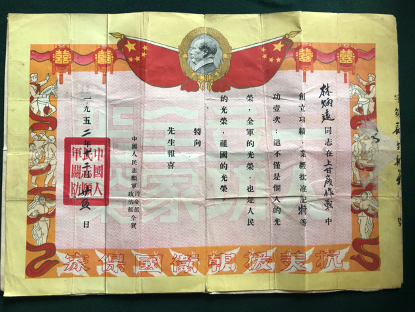 林炳遠同志在上甘嶺作戰中
創立功績，業經批准記特等
功壹次；這不僅是個人的光
榮，全軍的光榮，也是人民
的光榮，祖國的光榮
特向
先生報喜
中國人民志願軍政治部仝賀
一九五二年
日
抗美援朝衛國保家